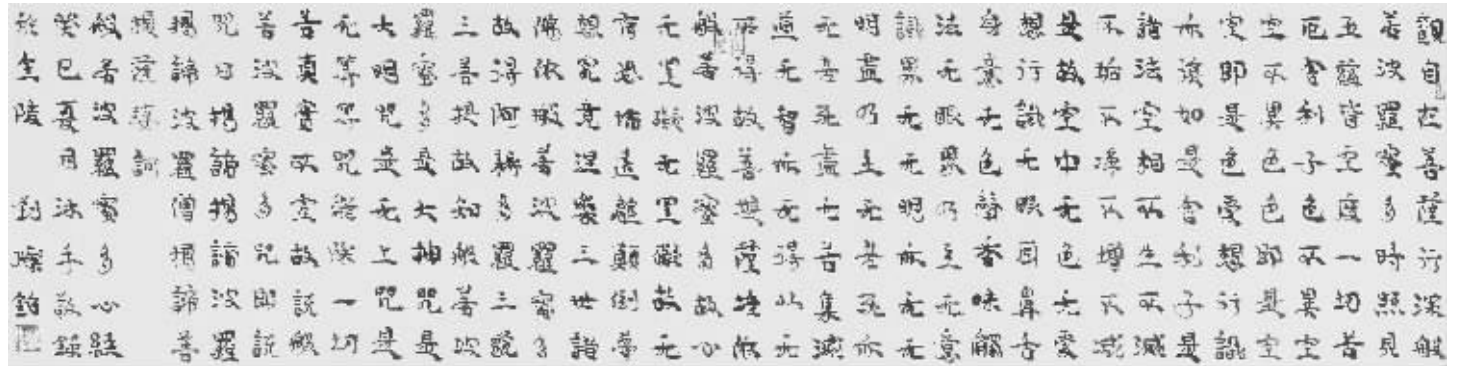 觀自在菩薩行深般
若波羅蜜多時照見
五蘊皆空度一切苦
厄舍利子色不異空
空不異色色即是空
空即是色受想行識
亦復如是舍利子是
諸法空相不生不滅
不垢不淨不增不減
是故空中无色无受
想行識无眼耳鼻舌
身意无色聲香味觸
法无眼界乃至无意
識界无无明亦无无
明盡乃至无老死亦
无老死盡无苦集滅
道无智亦无得以无
所得故菩提薩埵依
般若波羅蜜多故心
无罣礙无罣礙故无
有恐怖遠離顛倒夢
想究竟涅槃三世諸
佛依般若波羅蜜多
故得阿耨多羅三藐
三菩提故知般若波
羅蜜多是大神咒是
大明咒是无上咒是
无等等咒能除一切
苦真實不虛故說般
若波羅蜜多咒即說
咒曰揭諦揭諦波羅
揭諦波羅僧揭諦菩
提薩婆訶
般若波羅蜜多心經
癸巳夏月沐手敬錄
於金陵